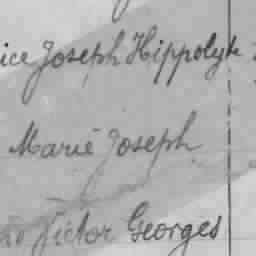 ice Joseph Hippolyte
Marie Joseph
Victor Georges